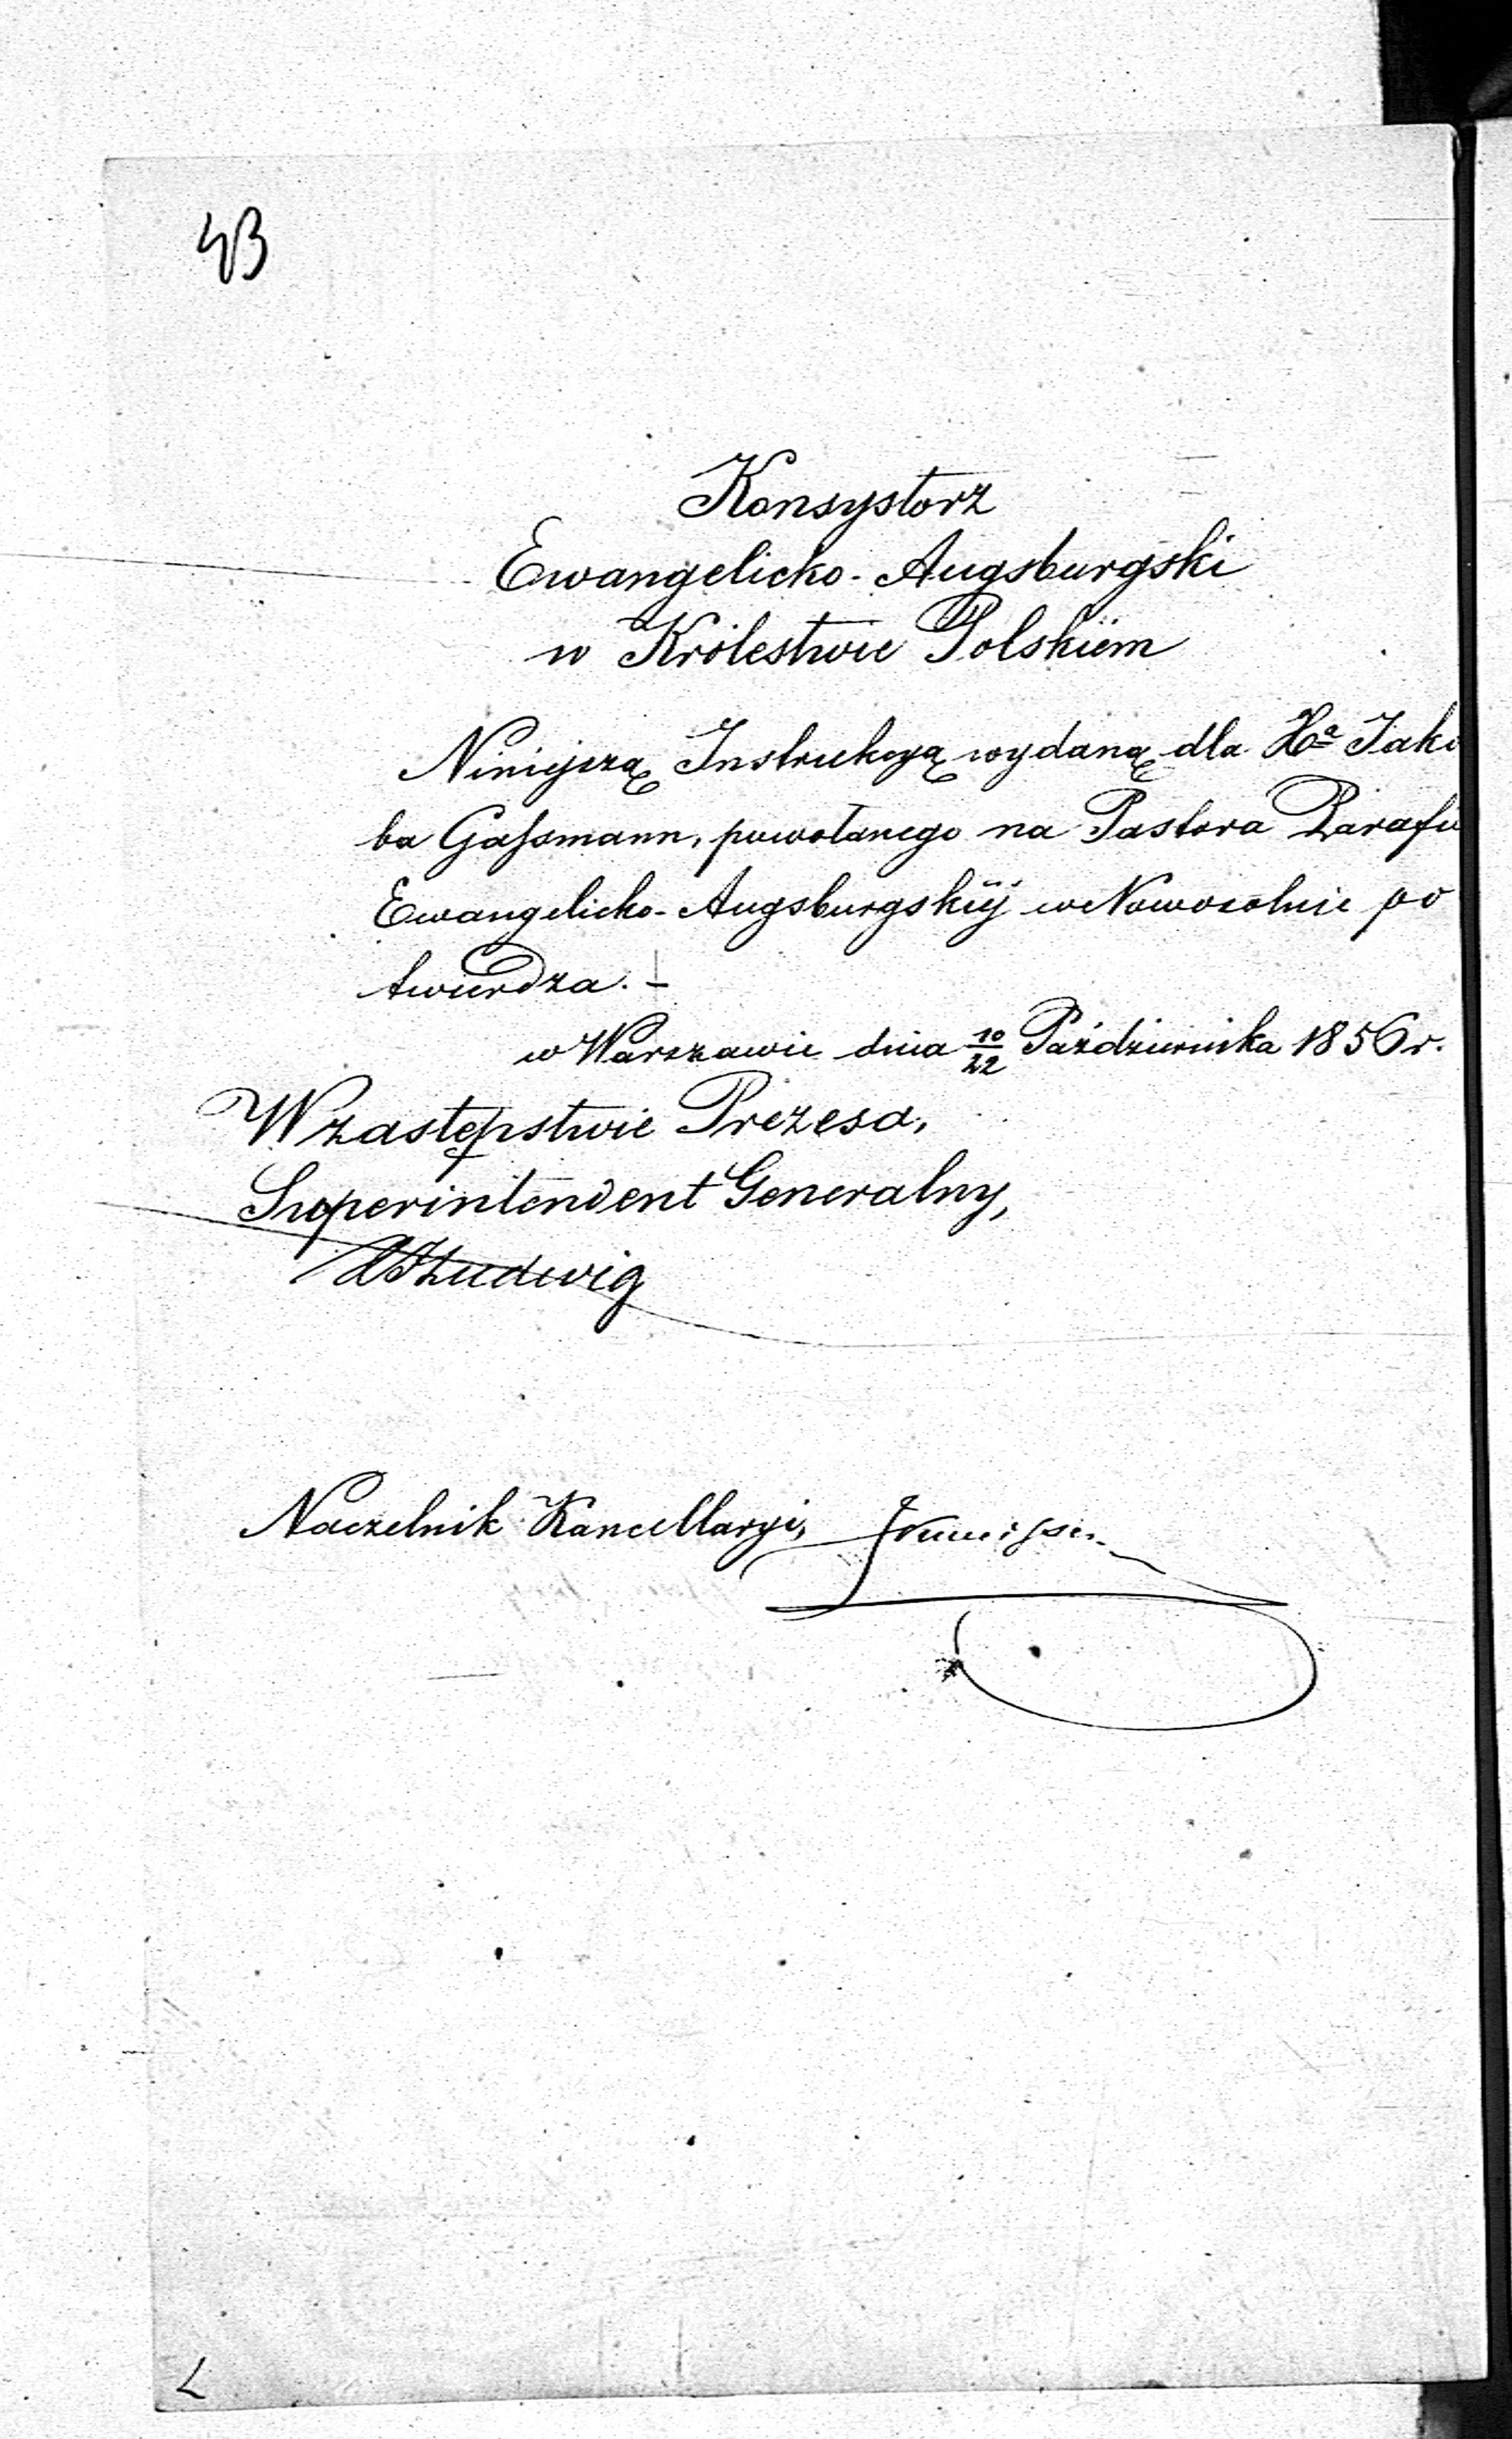 43
Konsystorz
Ewangelicko-Augsburgski
w Królestwie Polskiém
Niniejszą Instrukcyą wydaną dla Xa Jako
ba Gaſsmann, powołanego na Pastora Parafii
Ewangelicko-Augsburgskiéj w Nowosolnie po
twierdza. –
w Warszawie dnia 10/22 Października 1856 r.
W zastępstwie Prezesa,
Superintendent Generalny,
Ludwig
Naczelnik Kancellaryi,
L